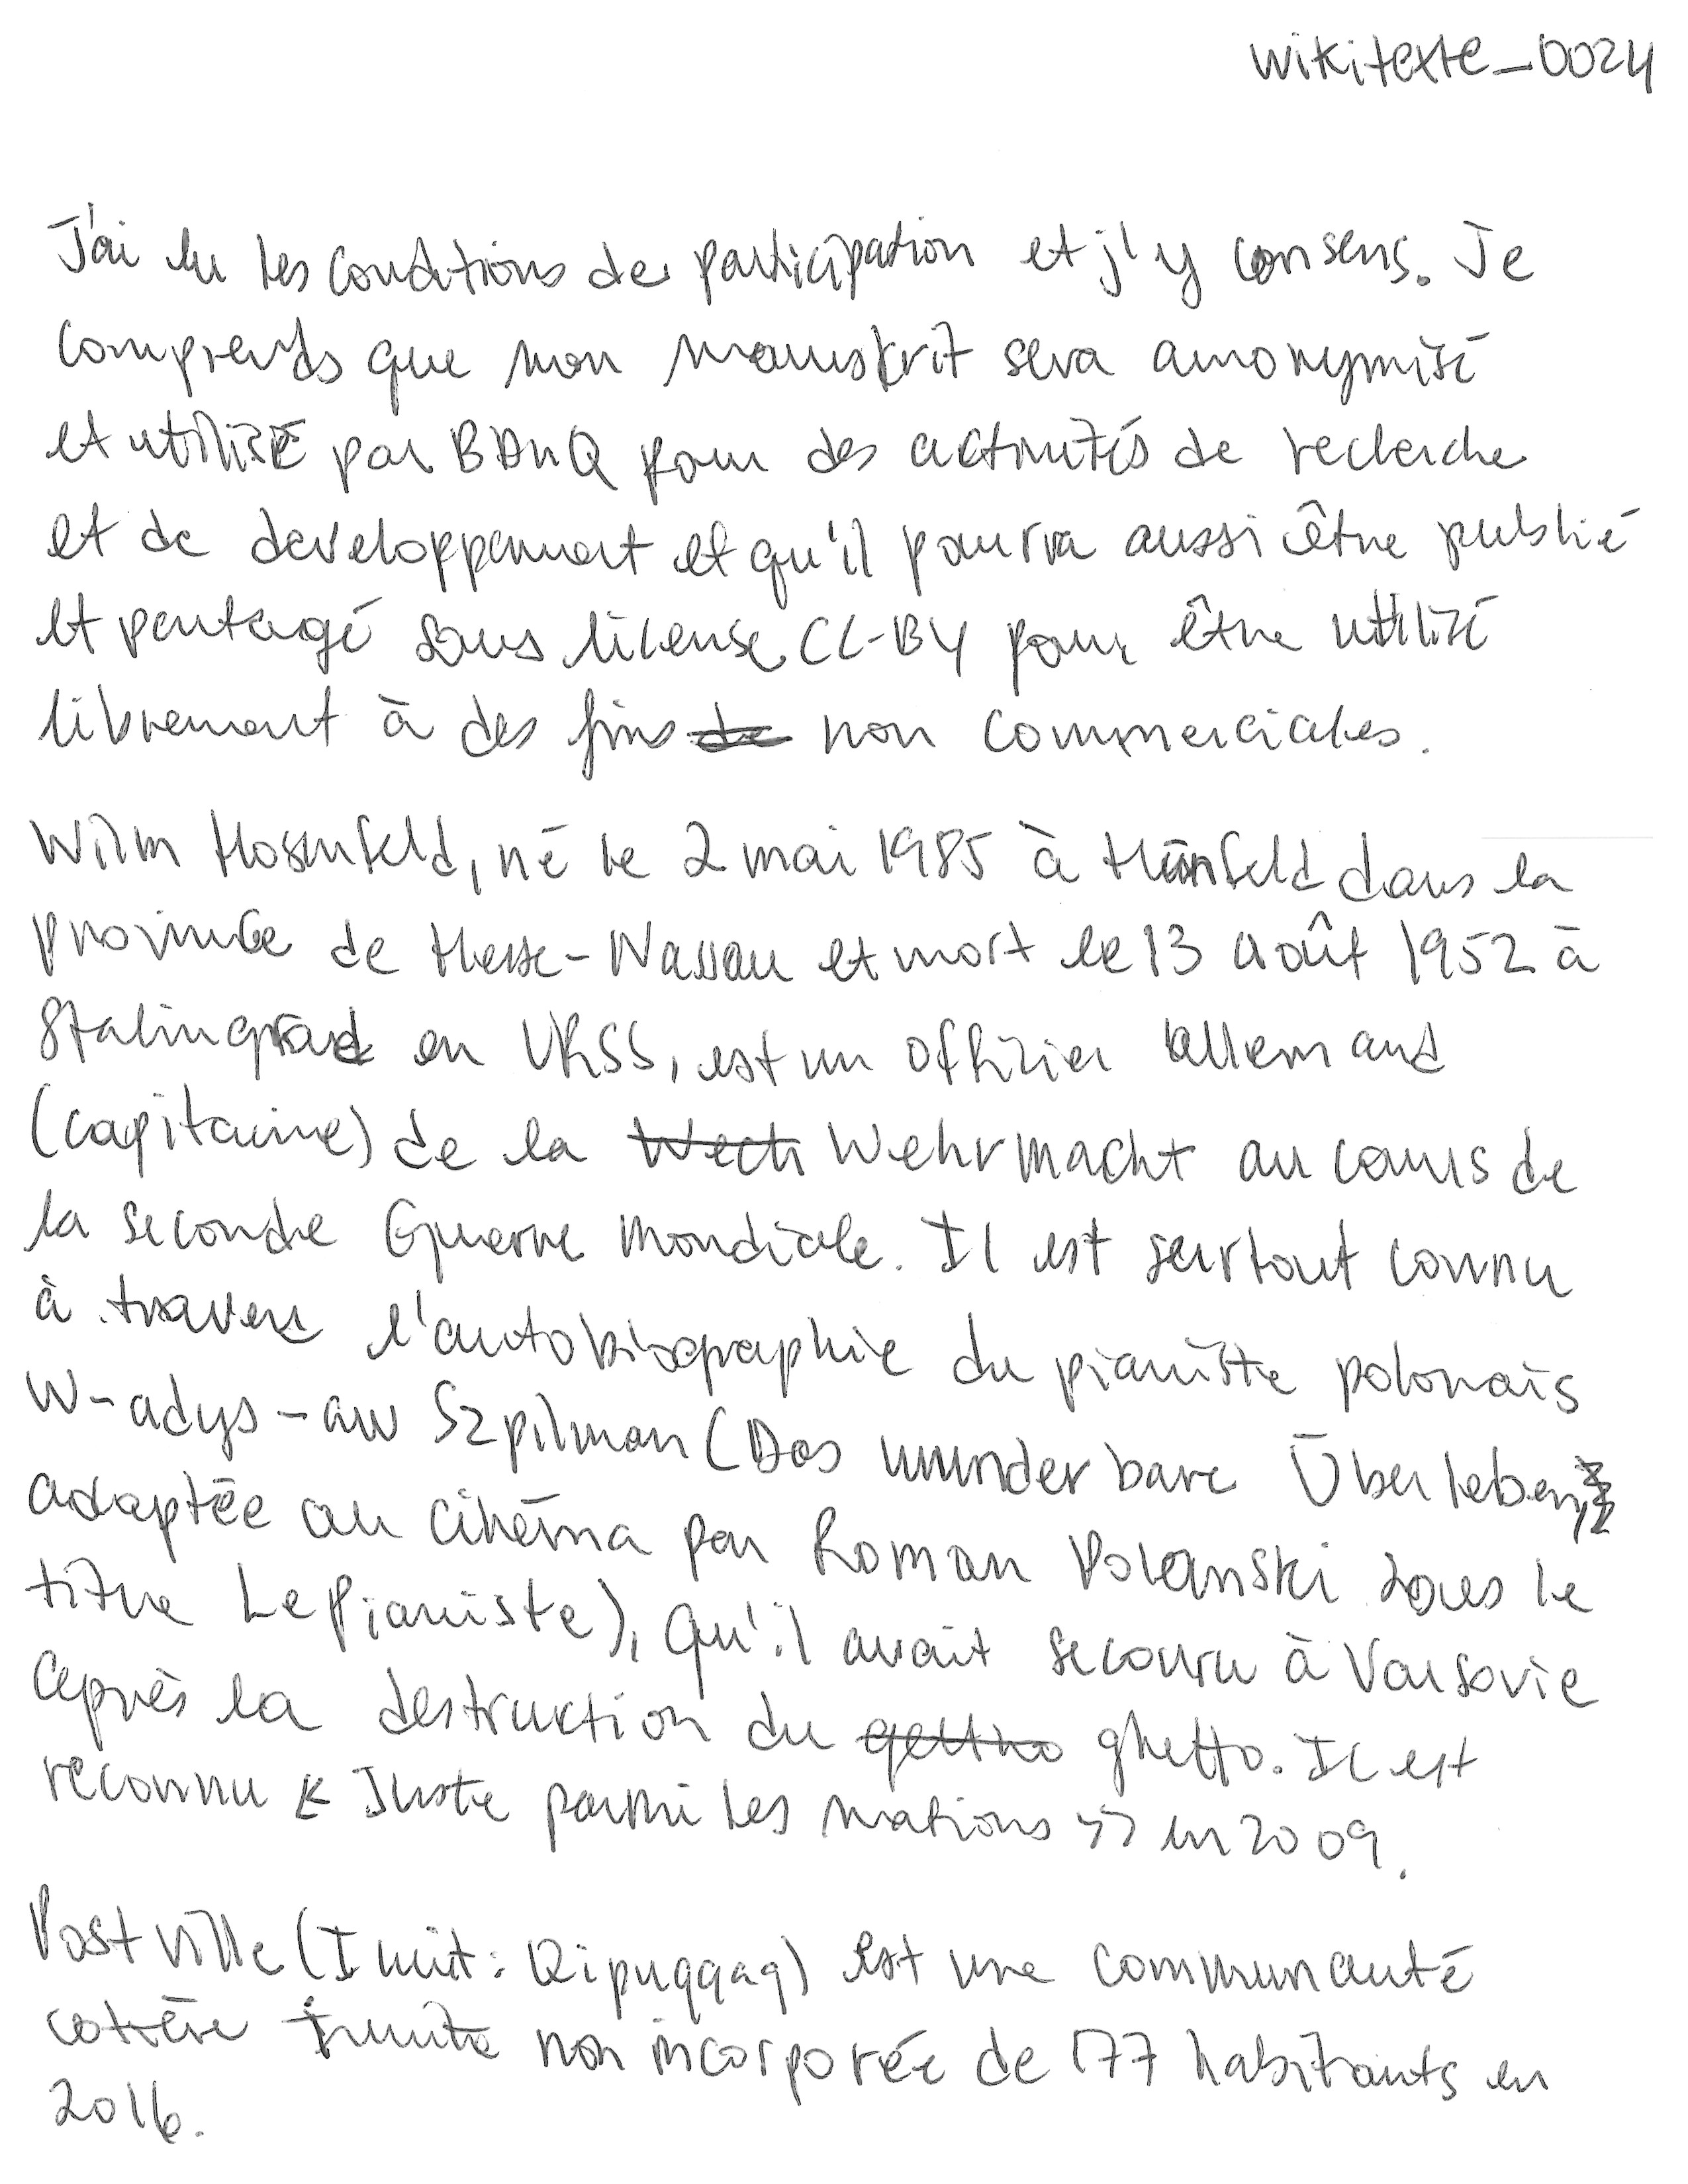 wikitexte_0024
J'ai lu les conditions de participation et j'y consens. Je
comprends que mon manuskrit sera anonymisé
et utilisé par BAnQ pour des activités de recherche
et de developpement et qu'il pourra aussi être publié
et partagé sous license CC-BY pour être utilisé
librement à des fins de non commerciales.
Wilm Hosenfeld, né le 2 mai 1985 à Hünfeld dans la
province de Hesse-Nassau et mort le 13 août 1952 à
Stalingrad en URSS, est un offizier allemand
(capitaine) de la Wech Wehrmacht au cours de
la seconde Guerre mondiale. Il est surtout connu
à travers l'autobiographie du pianiste polonais
W-adys-aw Szpilman (Das wunderbare Überleben,
adaptée au cinéma par Roman Polanski sous le
titre Le Pianiste), qu'il avait secouru à Varsovie
après la destruction du gettho ghetto. Il est
reconnu « Juste parmi les nations » en 2009.
Postville (Inuit: Qipuqqaq) est une communauté
cotière inuite non incorporée de 177 habitants en
2016.